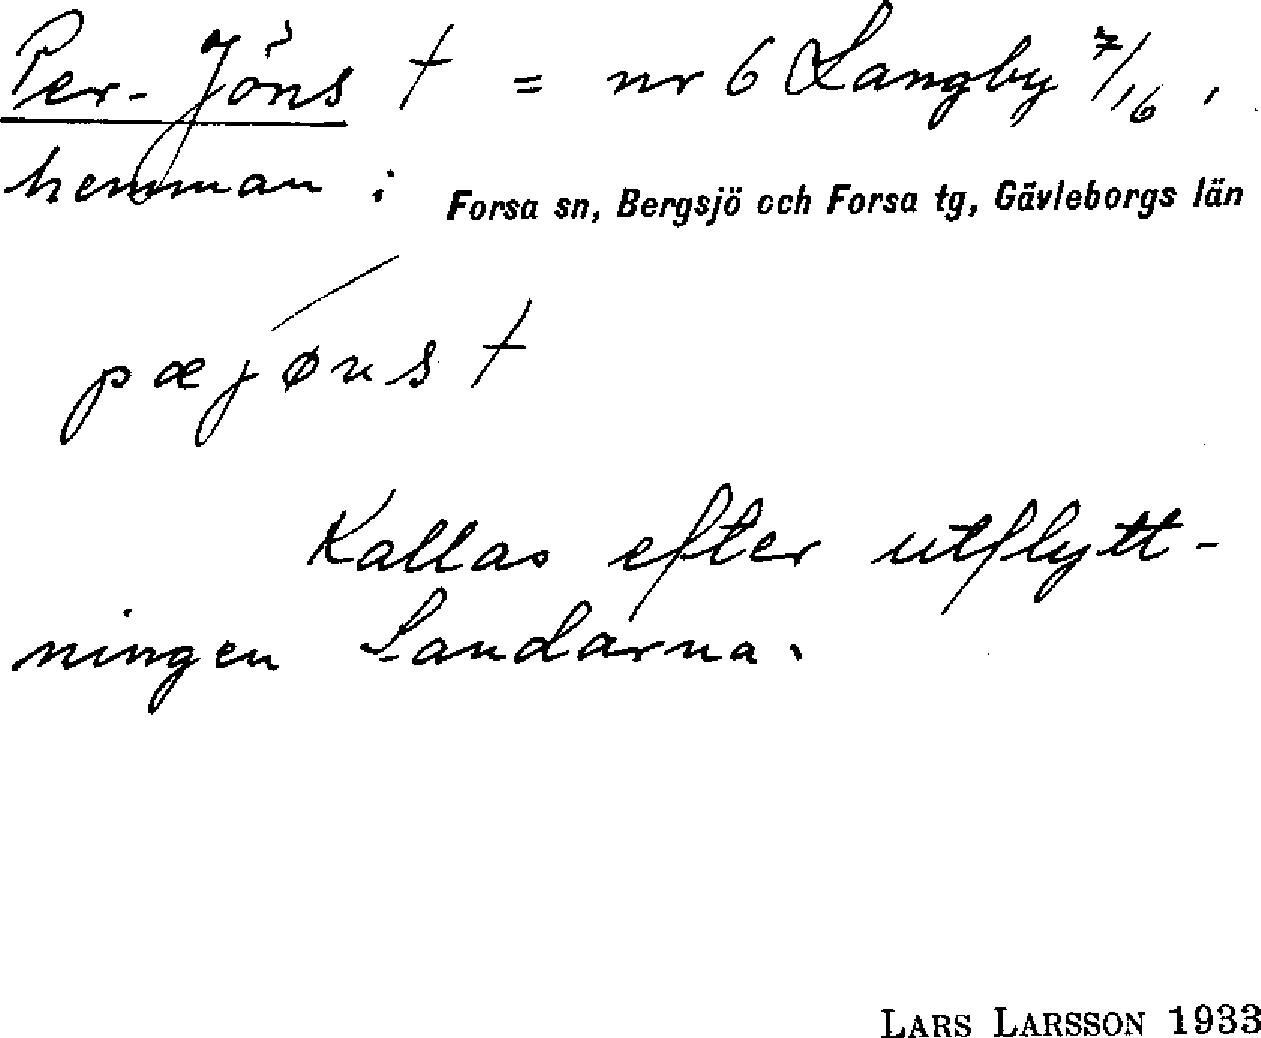 Per-Jöns † = nr 6 Langby 7/16,
hemman i Forsa sn, Bergsjö och Forsa tg, Gävleborgs län
pæjøns †
Kallas efter utflytt-
ningen Sandarna.
LARS LARSSON 1933